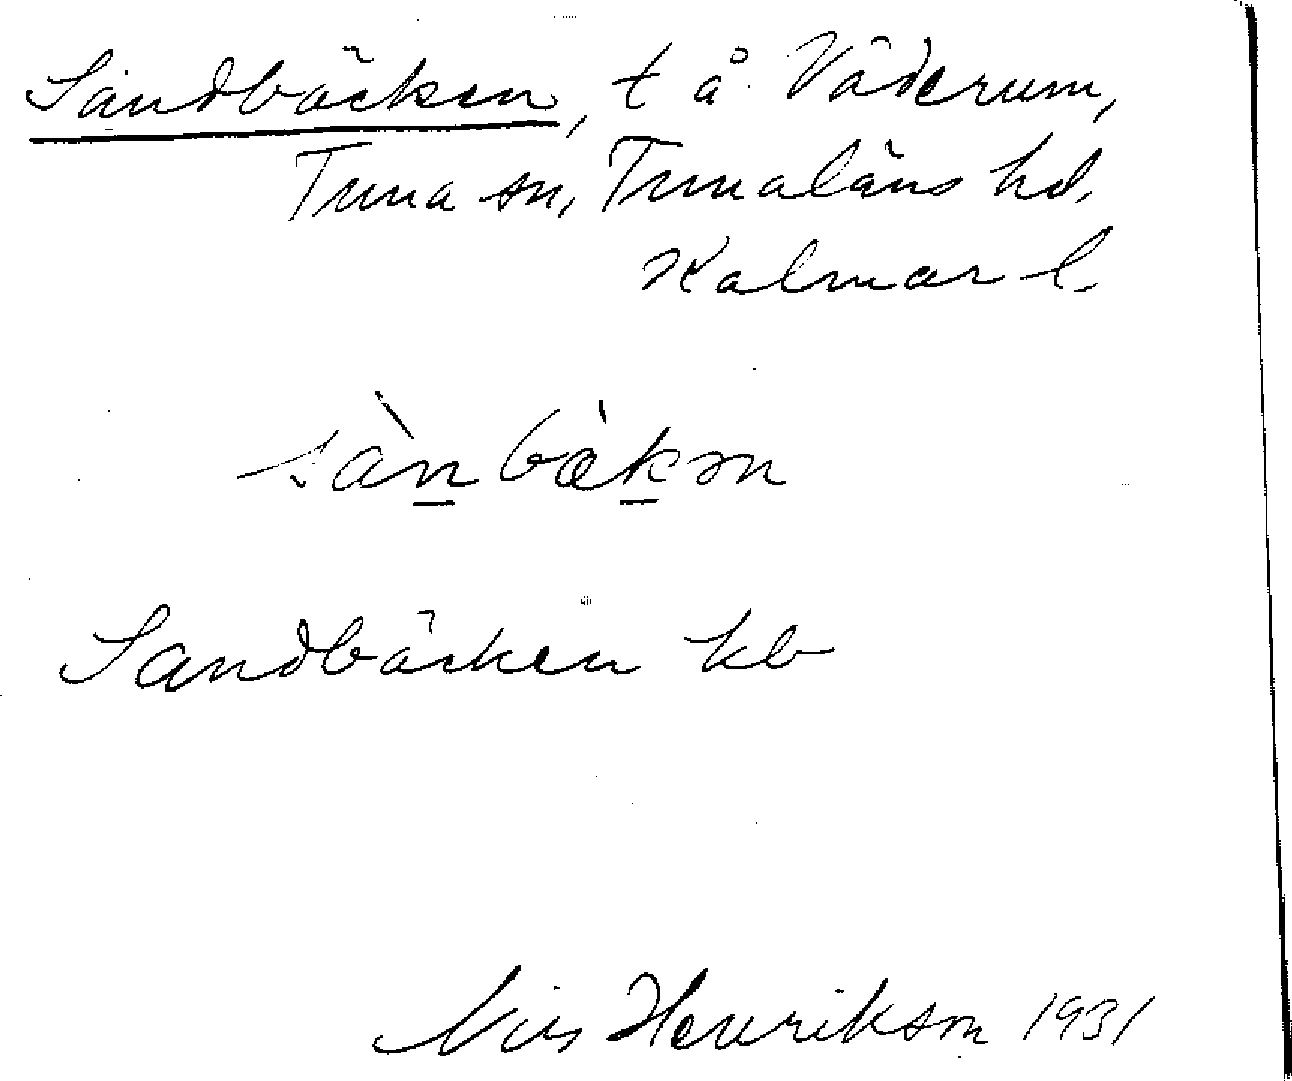 Sandbäcken, t å Väderum,
Tuna sn, Tunaläns hd.
Kalmar l.
sàn bækən
Sandbäcken kb
Nils Henrikson 1931